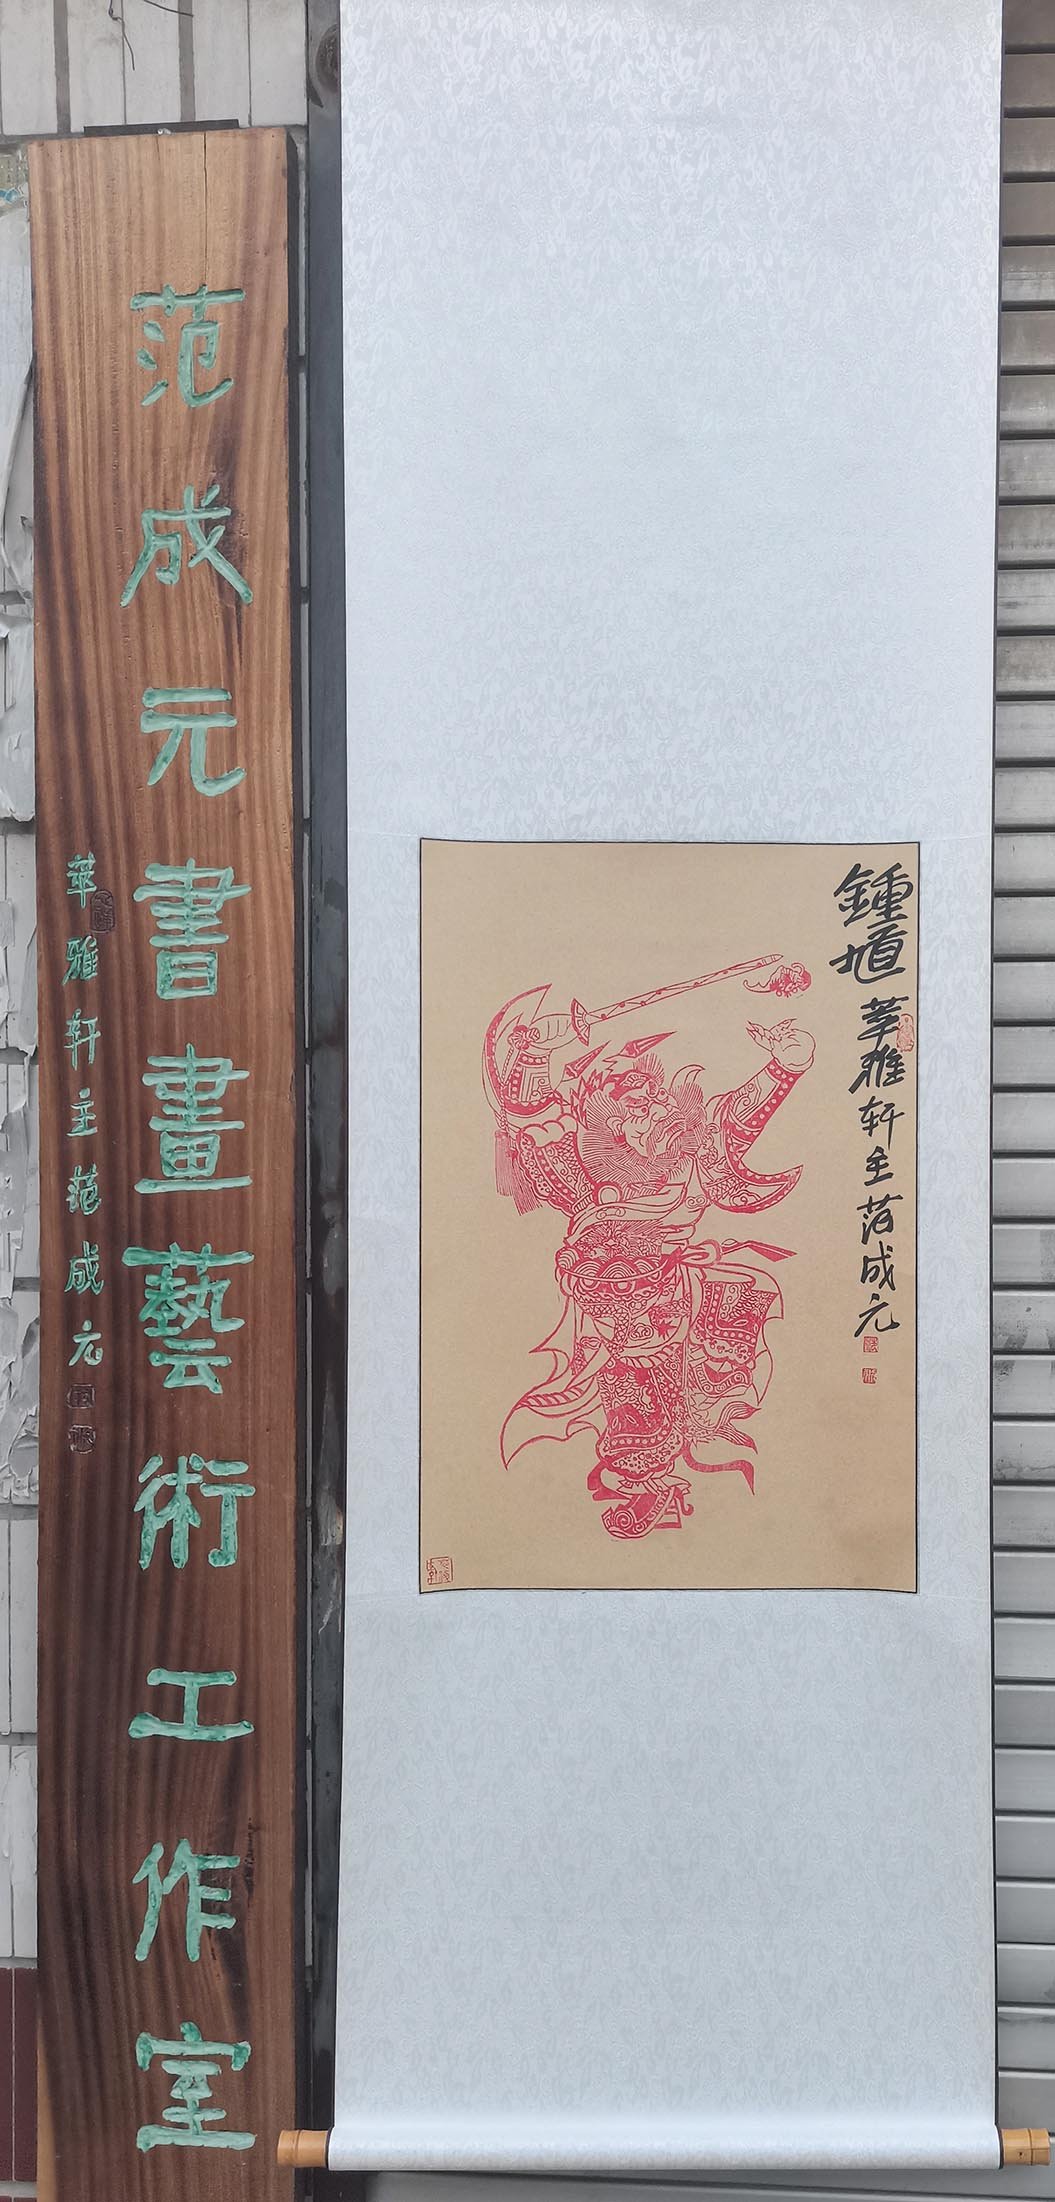 范成元書畫藝術工作室
莘雅轩主范成元
鍾馗
莘雅轩主范成元